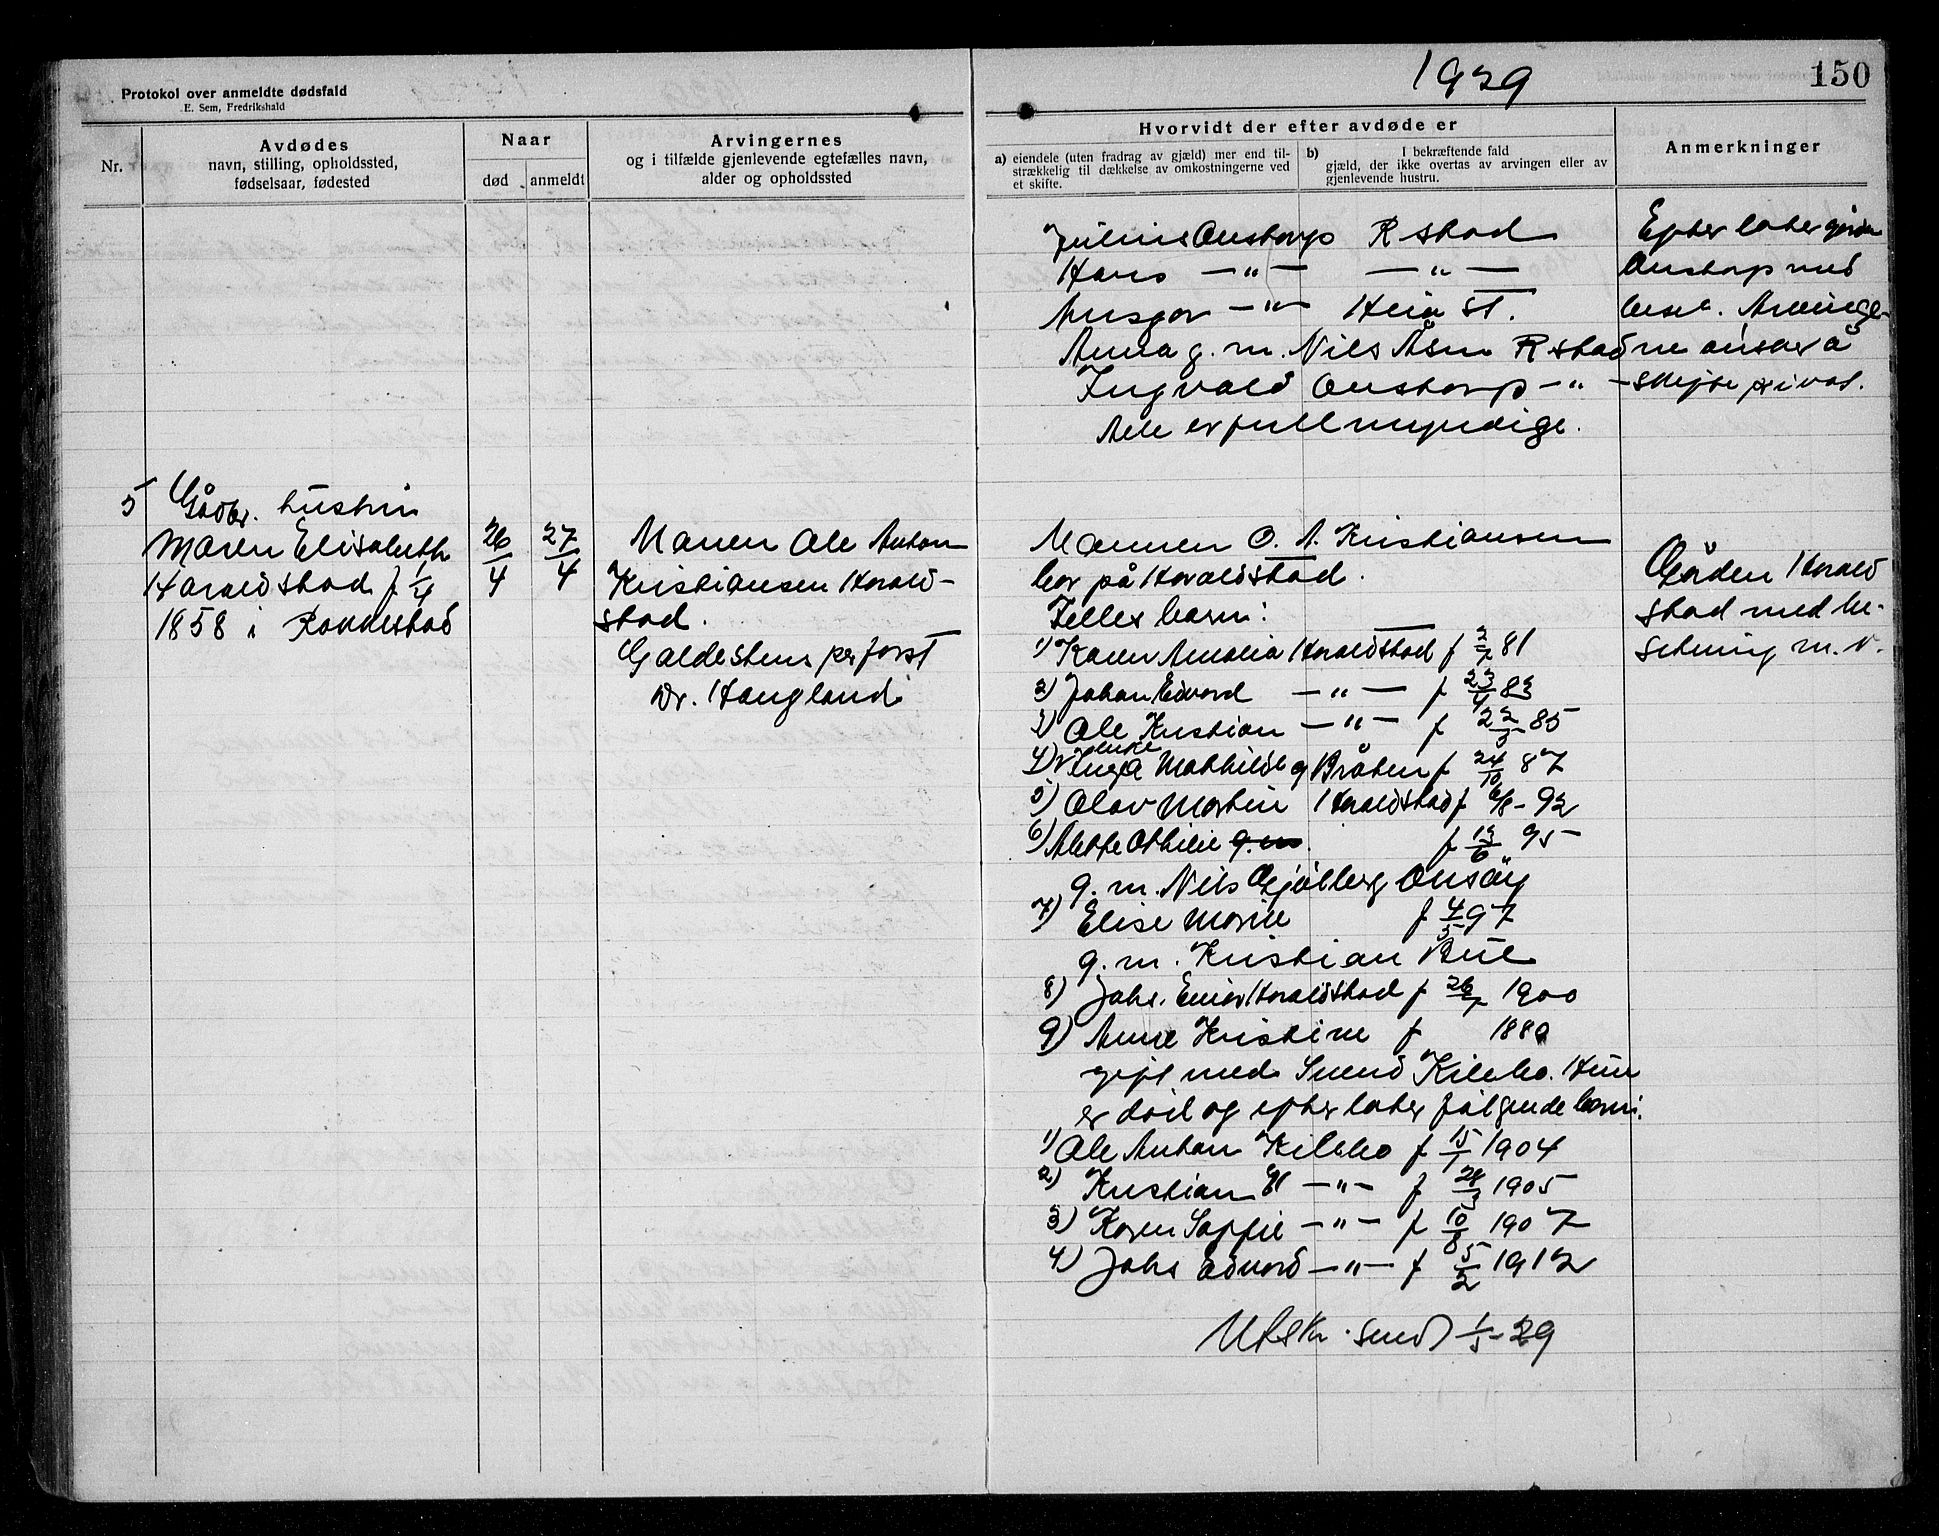 Protokol over anmeldte dødsfald
E. Sem, Fredrikshald
1929
150
Nr.
Avdødes
navn, stilling, opholdssted,
fødselsaar, fødested
Naar
død
anmeldt
Arvingernes
og i tilfælde gjenlevende egtefælles navn,
alder og opholdssted
Hvorvidt der efter avdøde er
a) eiendele (uten fradrag av gjæld) mer end til-
strækkelig til dækkelse av omkostningerne ved
et skifte.
b) I bekræftende fald
gjæld, der ikke overtas av arvingen eller av
gjenlevende hustru.
Anmerkninger
Julius Onstorp R stad
Hans —"— —"—
Ansgar —"— Heia st.
Anna g. m. Nils Åsen R stad
Ingvald Onstorp —"—
Alle er fullmyndige.
Efterlater gården
Onstorp med
bes. Arvinge-
ne ønsker å
skifte privat.
5
Gårdbr. hustru
Maren Elisabeth
Haraldstad f 1/4
1858 i Rakkestad
26/4
27/4
Mannen Ole Anton
Kristiansen Harald-
stad.
Galdestens per forst
Dr. Haugland
Mannen O. A. Kristiansen
bor på Haraldstad.
Felles barn:
1) Karen Amalia Haraldstad f 2/7 81
2) Johan Edvard —"— f 23/4 83
3) Ole Kristian —"— f 22/3 85
4) enke Inga Mathilde Bråten f 24/10 87
5) Olav Martin Haraldstad f 6/8 - 92
6) Alette Othilie g.m. f 12/6 95
g. m. Nils Gjølberg Onsøy
7) Elise Marie f 4/5 97
g. m. Kristian Bue
8) Johs. Einar Haraldstad f 26/7 1900
9) Anne Kristine f 1880
gift med Svend Kilebo. Hun
er død og efterlater følgende barn:
1) Ole Anton Kilebo f 15/1 1904
2) Kristian H —"— f 28/3 1905
3) Karen Soffie —"— f 10/8 1907
4) Johs Edvard —"— f 5/2 1912
Utskr. send 1/5 - 29
Gården Harald
stad med be-
setning m. v.